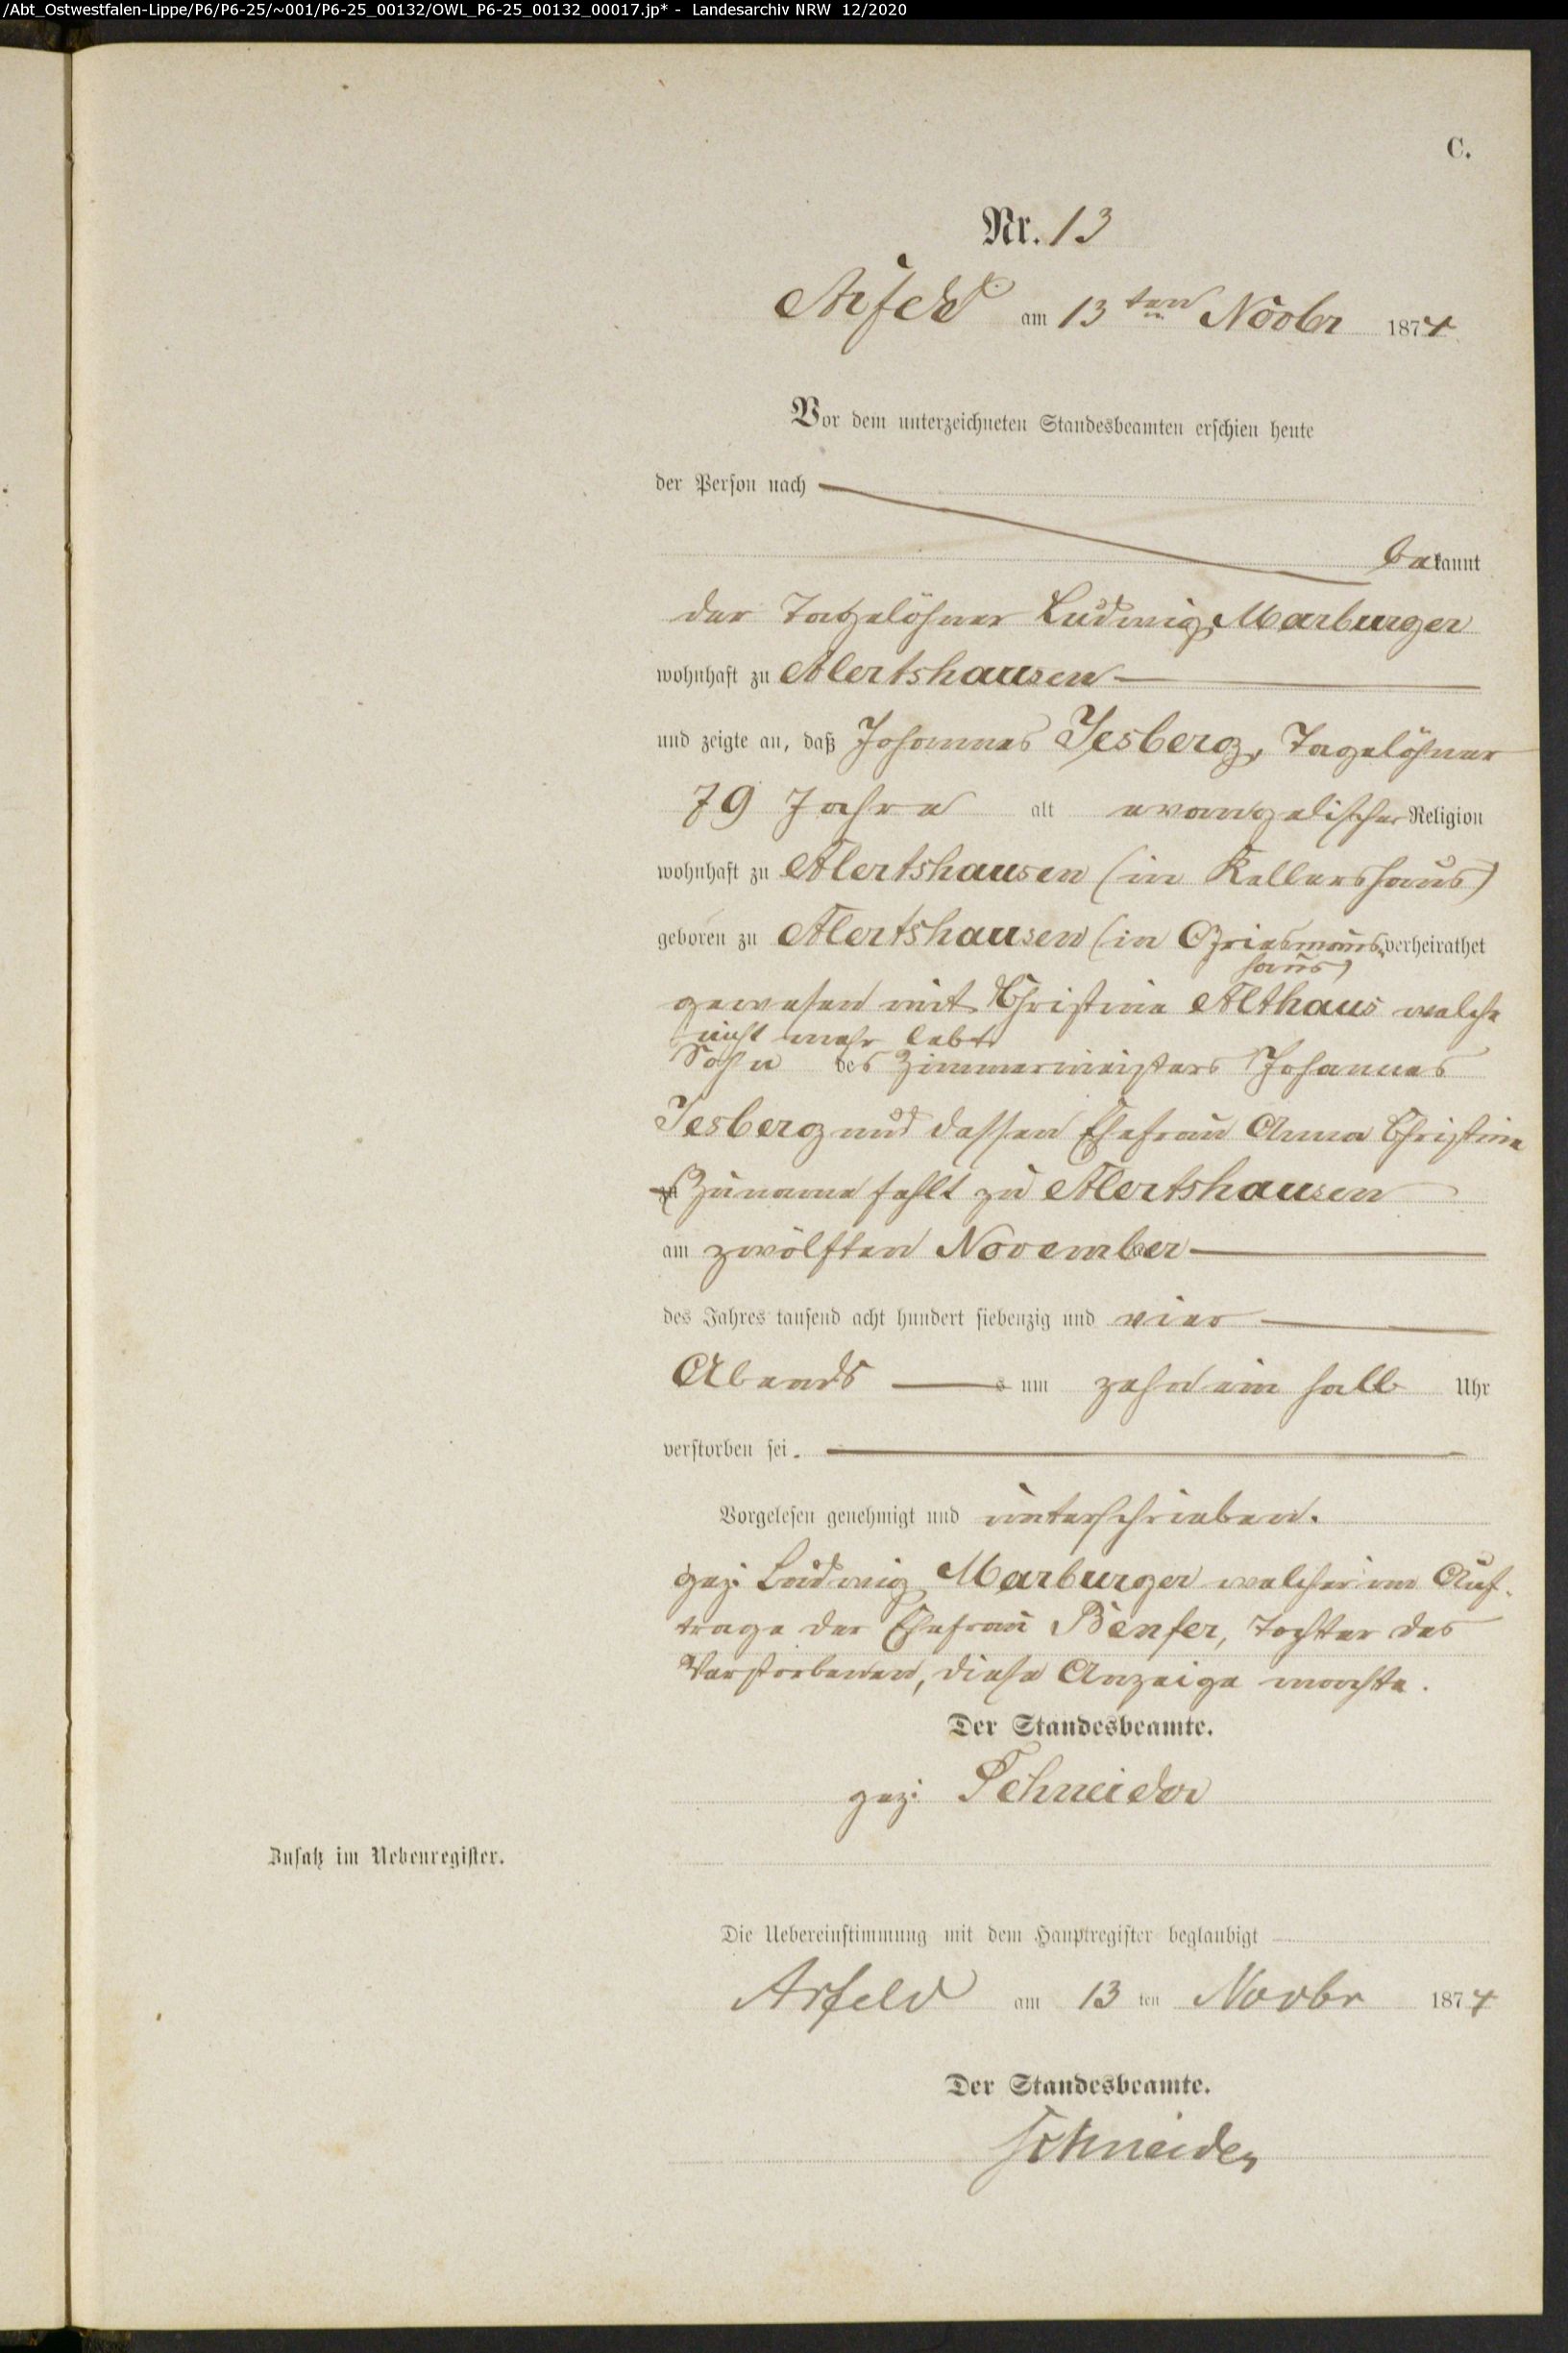 /Abt_Ostwestfalen-Lippe/P6/P6-25/~001/P6-25_00132/OWL_P6-25_00132_00017.jp* - Landesarchiv NRW 12/2020
C.
Nr. 13
Arfeld am 13 ten Novbr 1874
Vor dem unterzeichneten Standesbeamten erschien heute
der Person nach
bekannt
der Tagelöhner Ludwig Marburger
wohnhaft zu Alertshausen
und zeigte an, daß Johannes Jesberg, Tagelöhner
79 Jahre alt evangelischer Religion
wohnhaft zu Alertshausen (in Kellershaus)
geboren zu Alertshausen (in Griesmanns- verheirathet
haus)
gewesen mit Christine Althaus welche
nicht mehr lebt
Sohn des Zimmermeisters Johannes
Jesberg und dessen Ehefrau Anna Christine
Zuname fehlt zu Alertshausen
am zwölften November
des Jahres tausend acht hundert siebenzig und vier
Abends s um zehn ein halb Uhr
verstorben sei.
Vorgelesen genehmigt und unterschrieben.
gez: Ludwig Marburger welcher im Auf-
trage der Ehefrau Benfer, Tochter des
Verstorbenen, diese Anzeige machte.
Der Standesbeamte.
gez: Schneider
Zusatz im Nebenregister.
Die Uebereinstimmung mit dem Hauptregister beglaubigt
Arfeld am 13 ten Novbr 1874
Der Standesbeamte.
Schneider